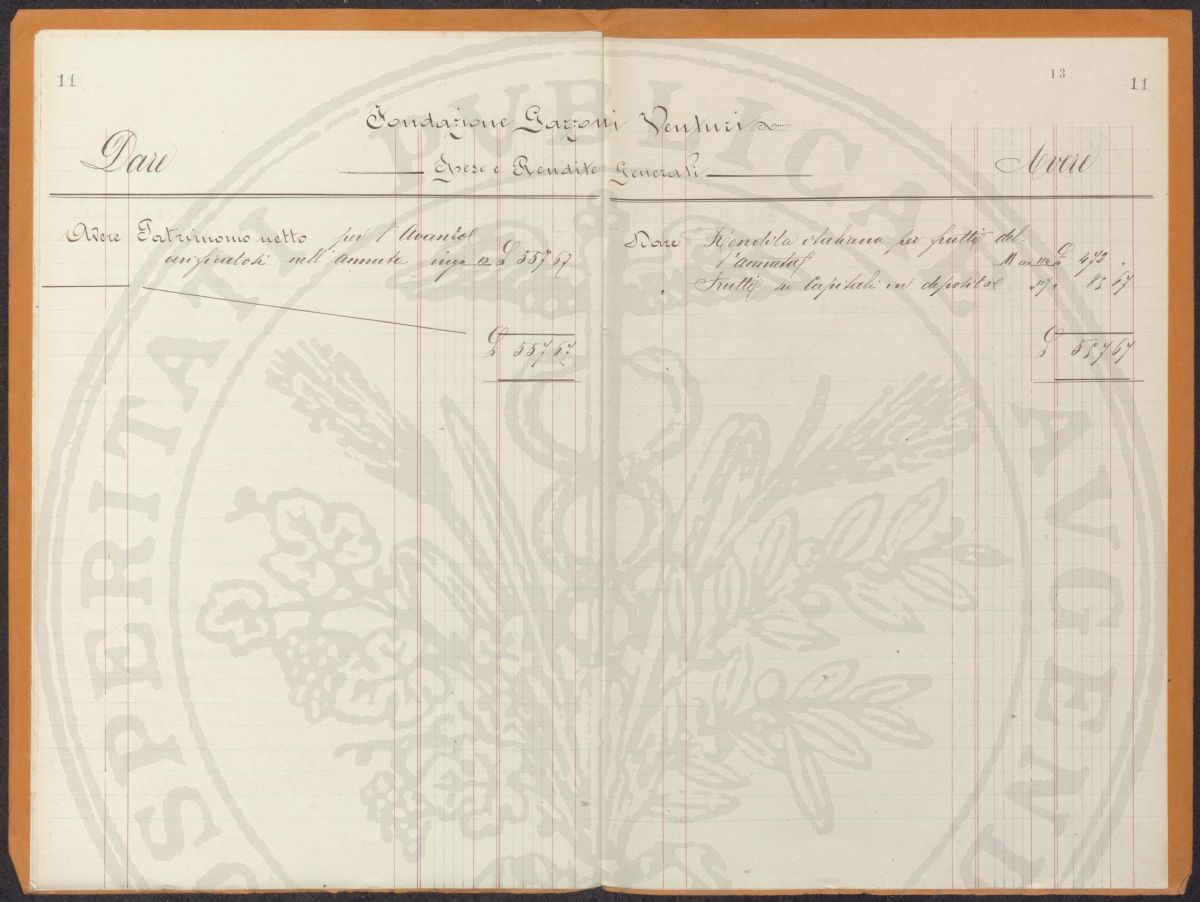 11
13
11
Fondazione Garzoni Venturi
Dare
Spese e Rendite Generali
Avere
Avere Patrimonio netto per l'Avanzo
verificatosi nell'annata 12 £ 557 67
£ 557 67
Dare Rendita italiana per frutti del
l'annata £ 472 "
" Frutti su Capitali in deposito " 85 67
£ 557 67
PROSPERITATI PUBLICAE AVGENDAE